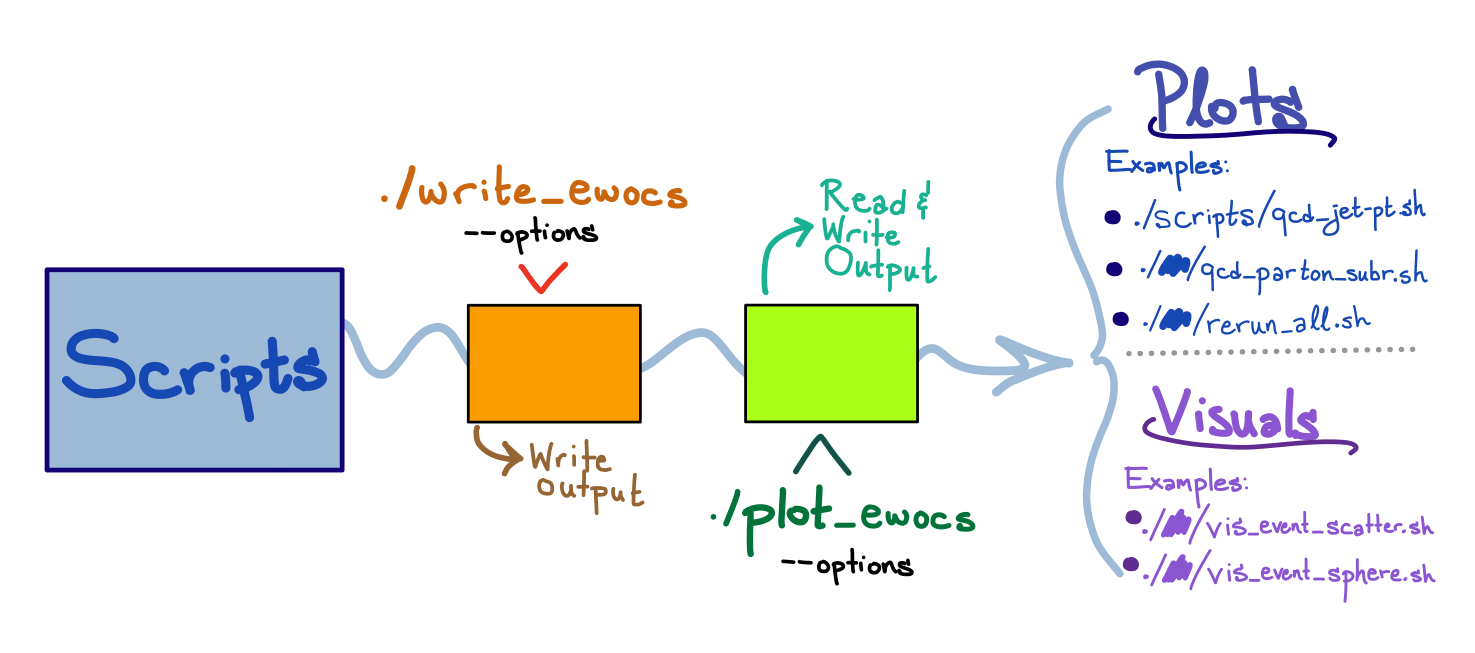 Scripts
./write_ewocs
--options
Write
output
Read &
Write
Output
./plot_ewocs
--options
Plots
Examples:
./scripts/qcd_jet-pt.sh
./ /qcd_parton_subr.sh
./ /rerun_all.sh
Visuals
Examples:
./ /vis_event_scatter.sh
./ /vis_event_sphere.sh